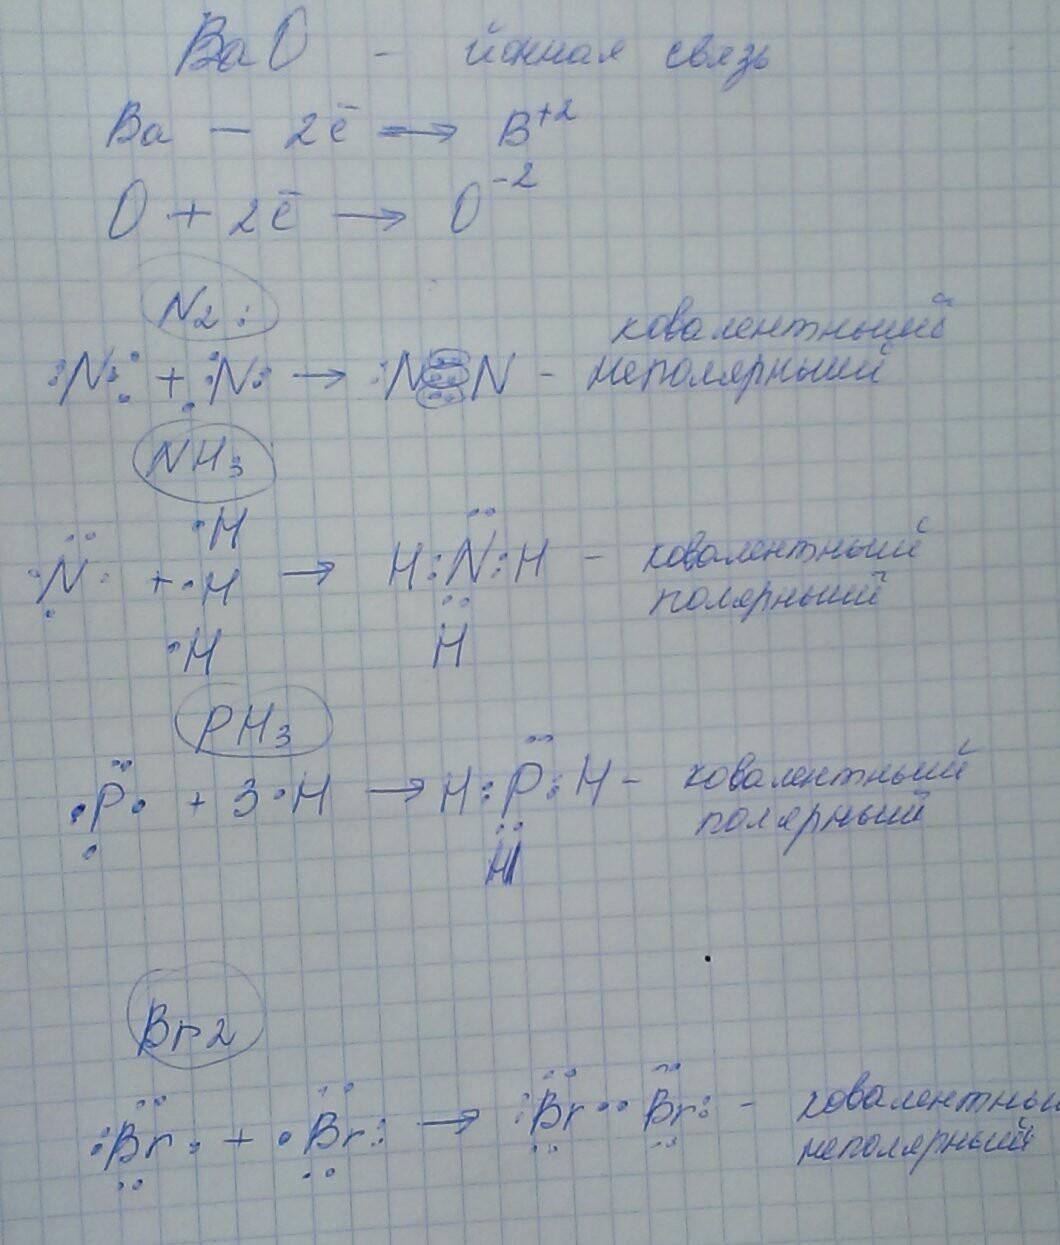 BaO - йонная связь
Ba - 2ē → B⁺²
O + 2ē → O⁻²
N₂:
:N⋮ + ⋮N: → :N⋮⋮N - ковалентныий
неполярныий
NH₃
·H
N + ·H → H:N:H - ковалентныий
полярныий
·H H
PH₃
·P· + 3·H → H:P:H - ковалентныий
полярныий
H
Br2
:Br· + ·Br: → :Br··Br: - ковалентныи
неполярныий